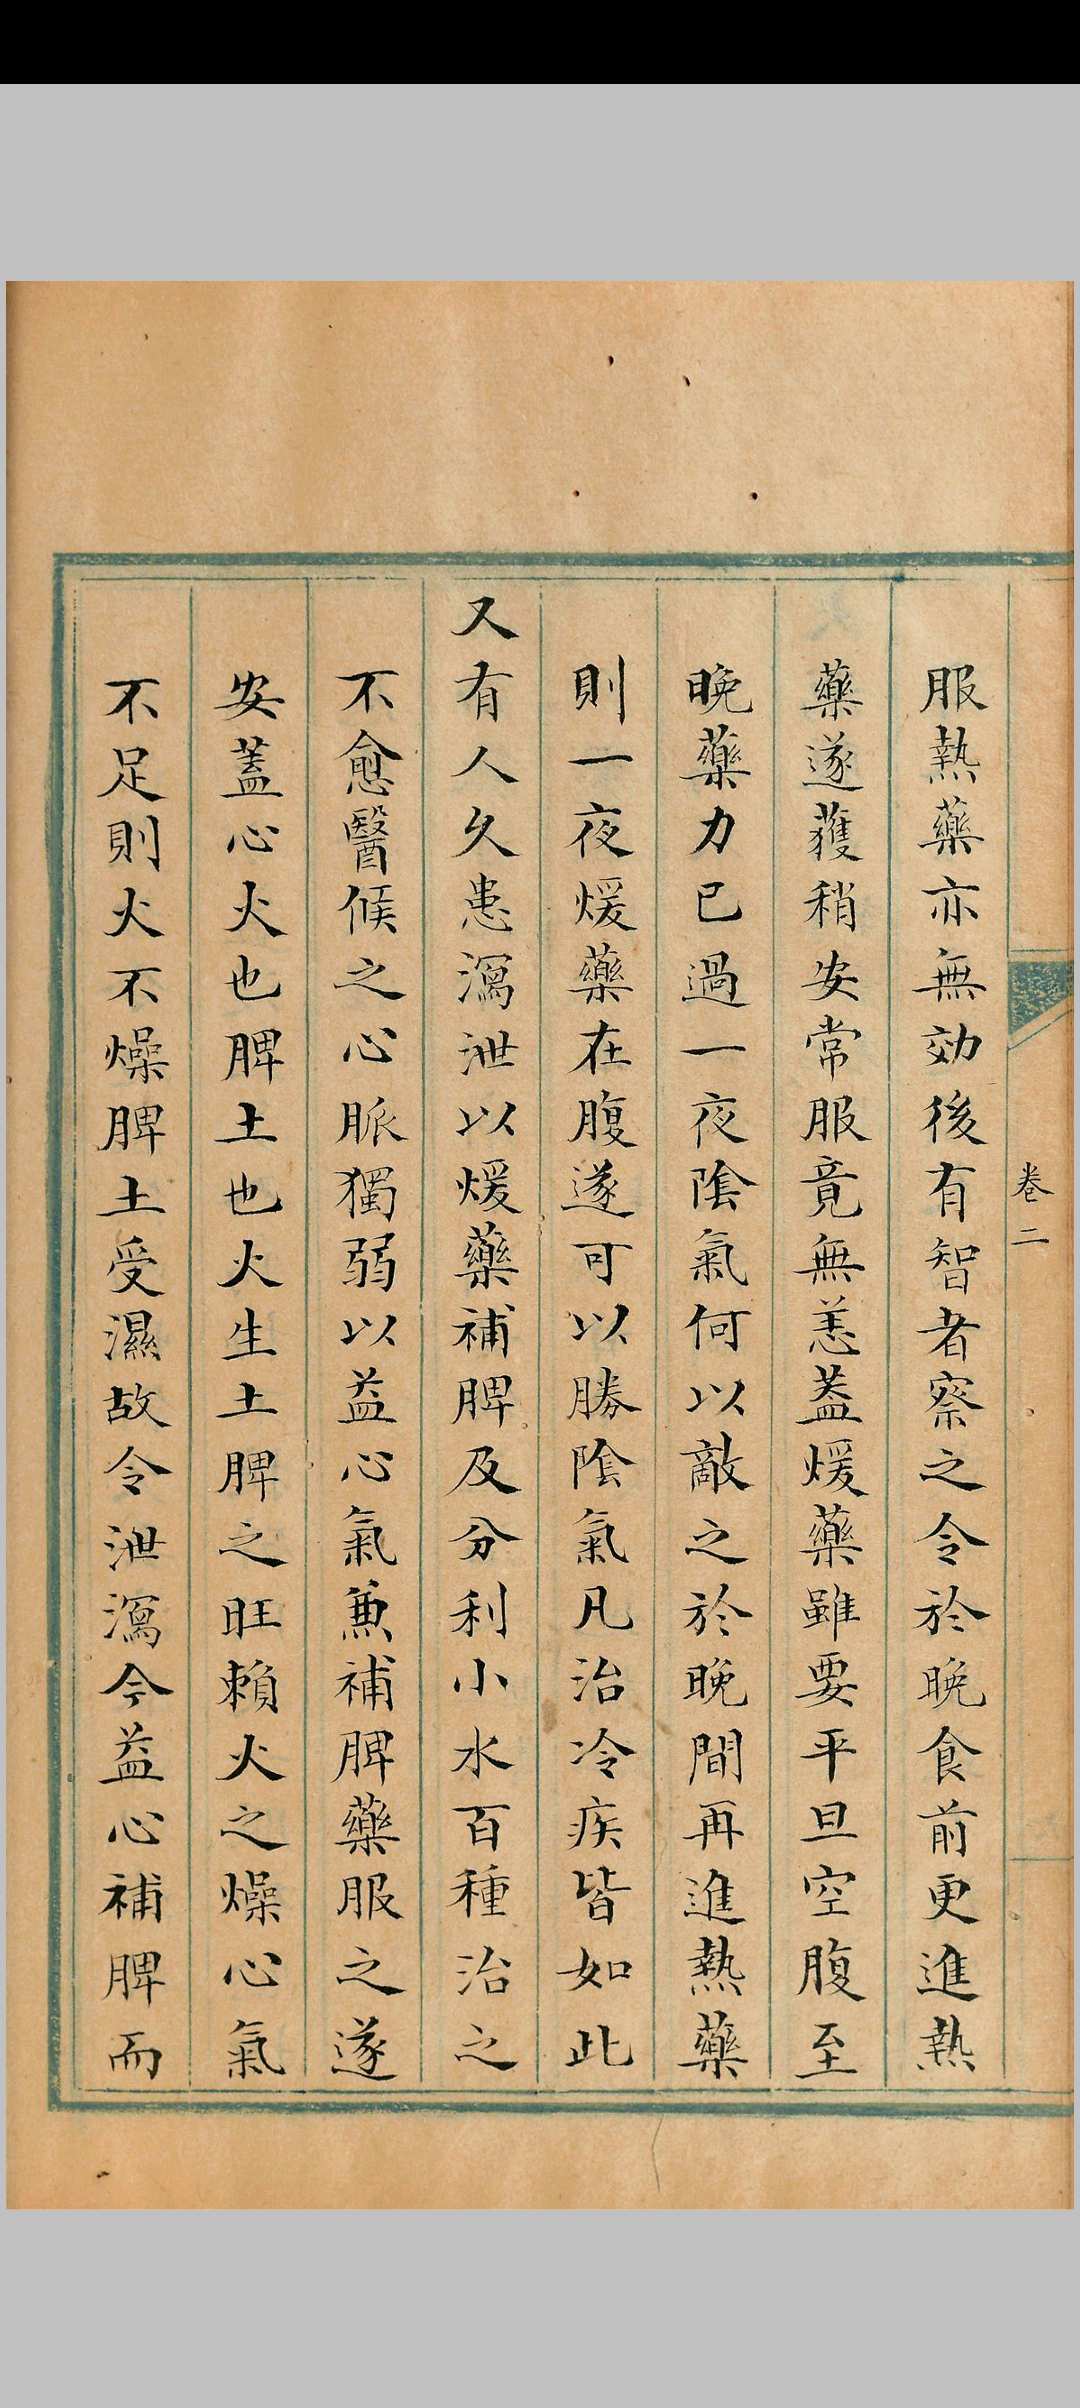 卷二
服熱藥亦無効後有智者察之令於晚食前更進熱
藥遂獲稍安常服竟無恙蓋煖藥雖要平旦空腹至
晚藥力已過一夜陰氣何以敵之於晚間再進熱藥
則一夜煖藥在腹遂可以勝陰氣凡治冷疾皆如此
又有人久患瀉泄以煖藥補脾及分利小水百種治之
不愈醫候之心脈獨弱以益心氣兼補脾藥服之遂
安蓋心火也脾土也火生土脾之旺賴火之燥心氣
不足則火不燥脾土受濕故令泄瀉今益心補脾而